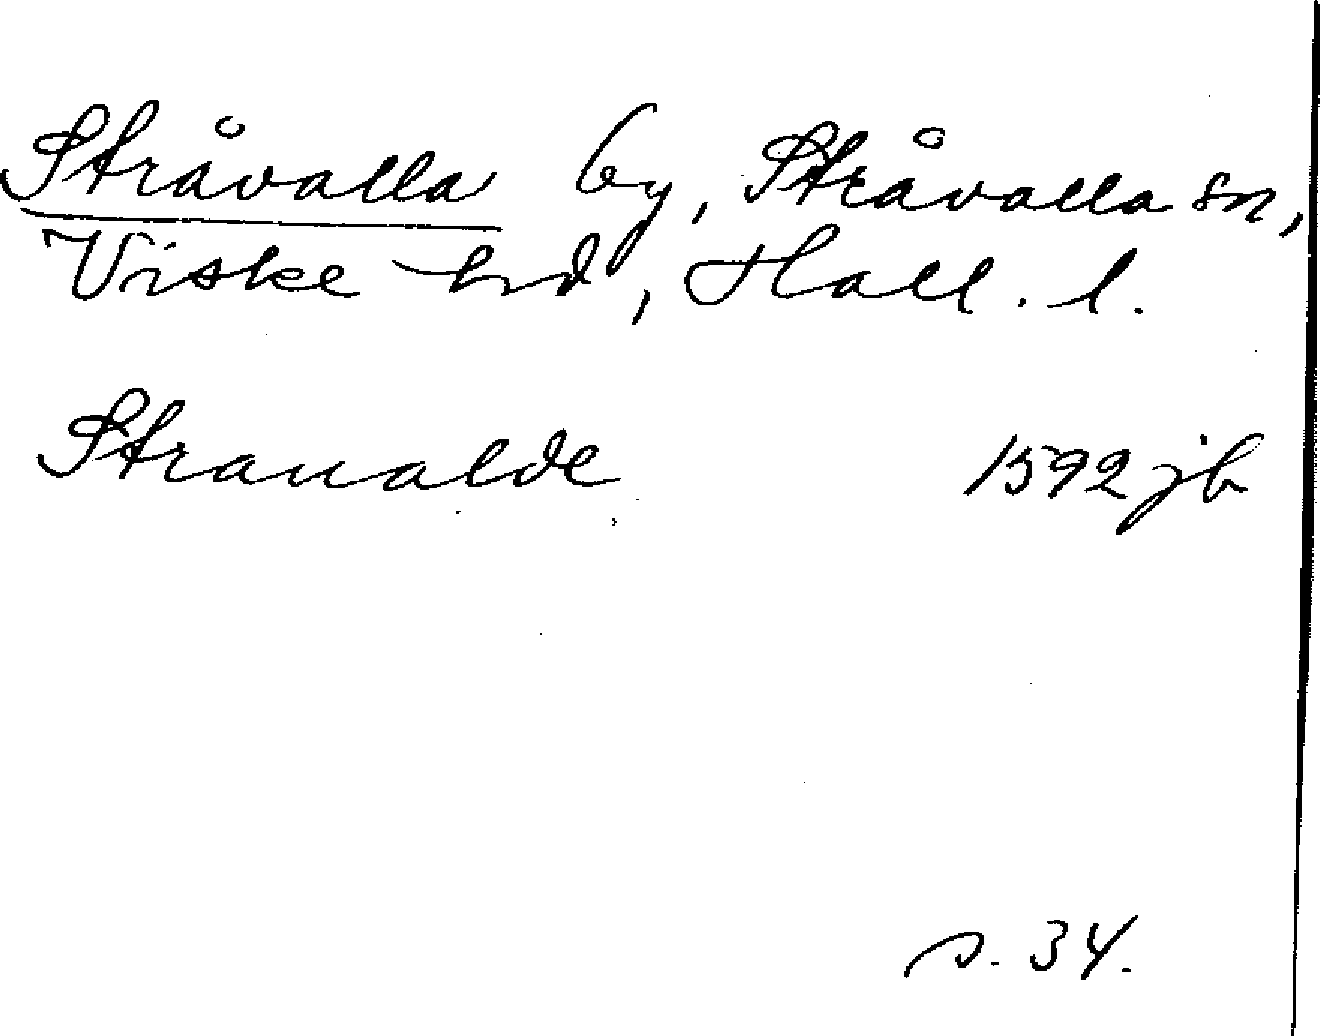 Stråvalla by, Stråvalla sn,
Viske hd, Hall. l.
Straualde 1592 jb
s. 34.